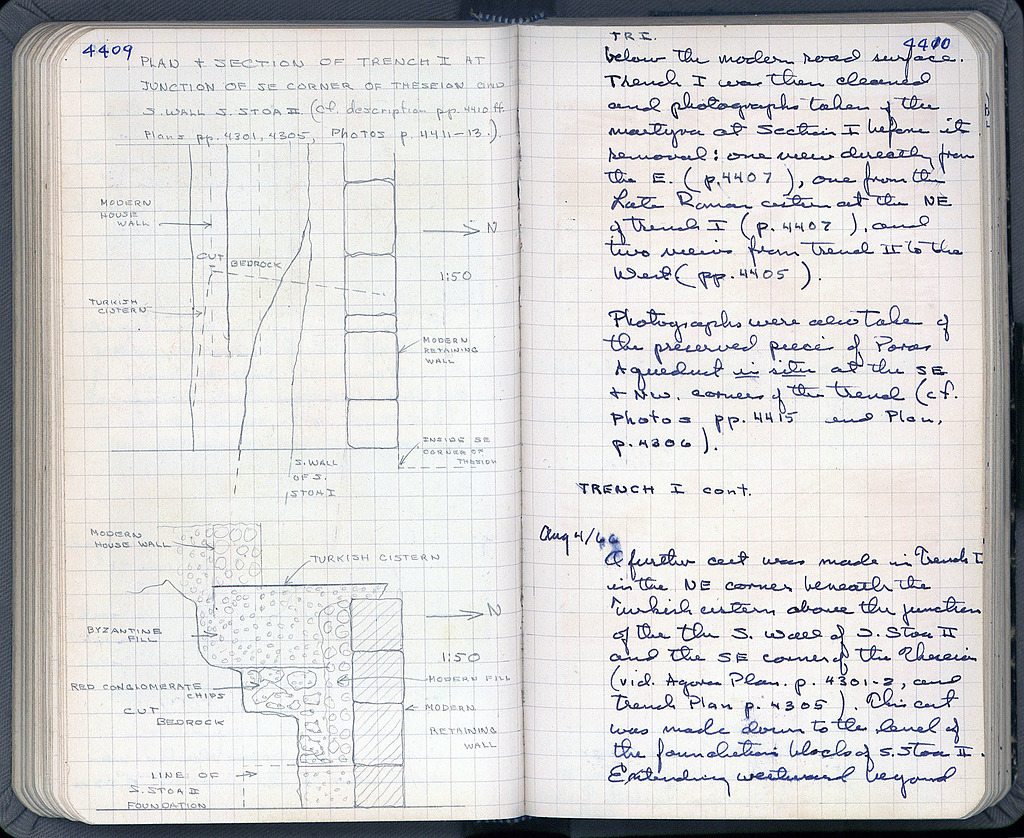 4409
PLAN + SECTION OF TRENCH I AT
JUNCTION OF SE CORNER OF THESEION AND
S. WALL S. STOA II (cf. description pp. 4410 ff.
Plans pp. 4301, 4305, Photos p. 4411-13.)
MODERN
HOUSE
WALL
N
CUT BEDROCK
1:50
TURKISH
CISTERN
MODERN
RETAINING
WALL
INSIDE SE
CORNER OF
THESEION
S. WALL
OF S.
STOA I
MODERN
HOUSE WALL
TURKISH CISTERN
N
BYZANTINE
FILL
1:50
MODERN FILL
RED CONGLOMERATE
CHIPS
CUT
BEDROCK
MODERN
RETAINING
WALL
LINE OF
S. STOA II
FOUNDATION
TR I.
4410
below the modern road surface.
Trench I was then cleaned
and photographs taken of the
martyra at Section I before its
removal: one view directly from
the E. (p. 4407), one from the
Late Roman cistern at the NE
of trench I (p. 4407), and
two views from trench II to the
West (pp. 4405).
Photographs were also take of
the preserved pieces of Poros
Aqueduct in situ at the SE
+ NW. corners of the trench (cf.
Photos pp. 4415 and Plan,
p. 4306).
TRENCH I cont.
Aug 4/66
A further cut was made in Trench I
in the NE corner beneath the
Turkish cistern above the junction
of the the S. wall of S. Stoa II
and the SE corner of the Theseion
(vid. Agora Plan. p. 4301-2, and
Trench Plan p. 4305). This cut
was made down to the level of
the foundation blocks of S. Stoa II.
Extending westward beyond